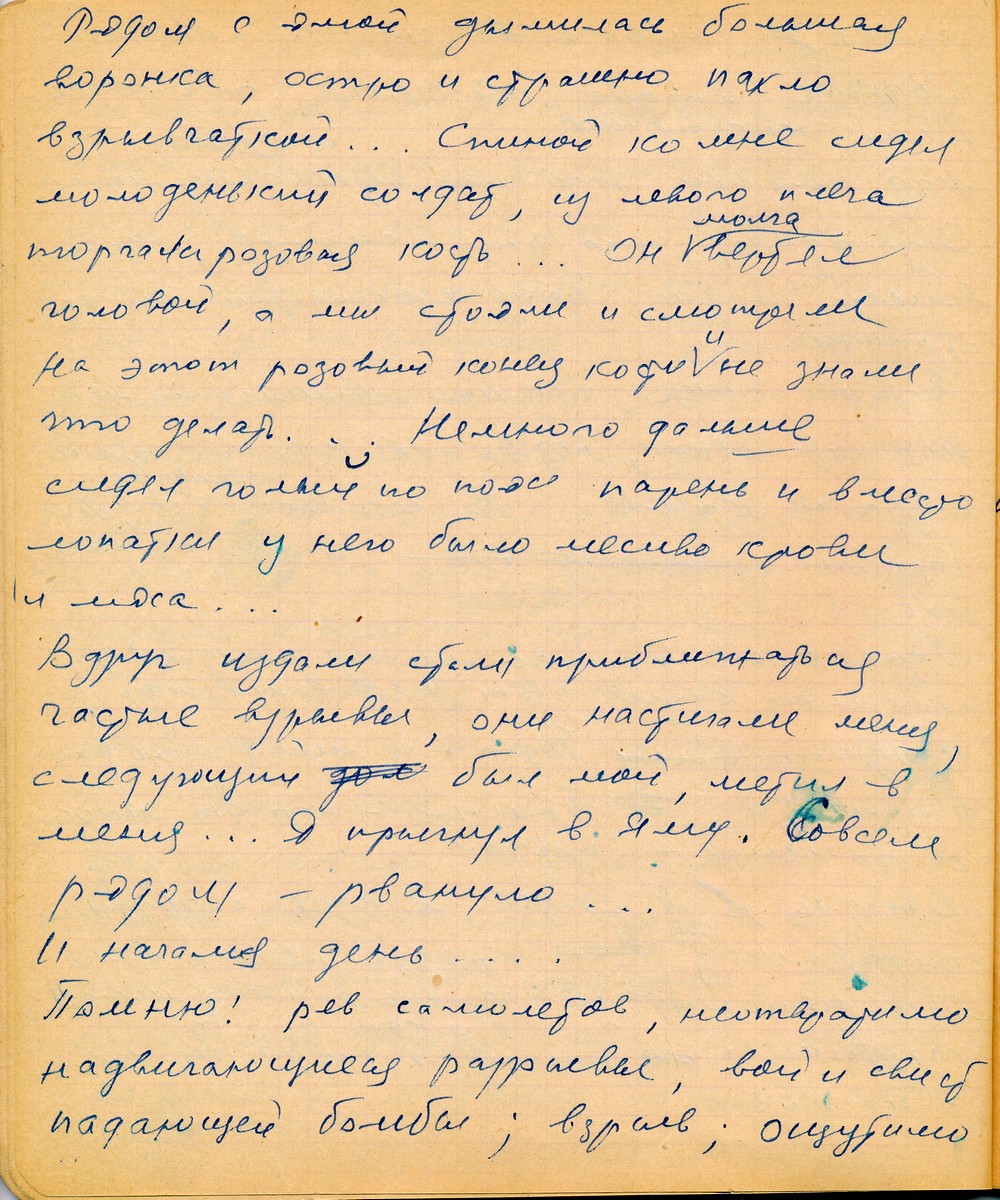 Рядом с ямой дымилась большая
воронка, остро и страшно пахло
взрывчаткой... Спиной ко мне сидел
молоденький солдат, из левого плеча
молча
торчала розовая кость... Он вертел
головой, а мы стояли и смотрели
на этот розовый конец кости и не знали
что делать.... Немного дальше
сидел голый по пояс парень и вместо
лопатки у него было месиво крови
и мяса...
Вдруг издали стали приближаться
частые взрывы, они настигали меня,
следующий был мой, метил в
меня... Я прыгнул в яму. Совсем
рядом – рвануло...
И начался день.....
Помню! рев самолетов, неотвратимо
надвигающиеся разрывы, вой и свист
падающей бомбы; взрыв; ощутимо